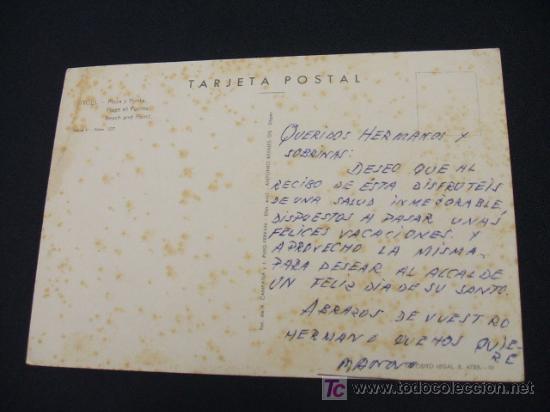 TARJETA POSTAL
- Playa y Punta.
Plage et Pointe.
Beach and Point.
QUERIDOS HERMANOS Y
SOBRINAS:
DESEO QUE AL
RECIBO DE ESTA DISFRUTEIS
DE UNA SALUD INMEJORABLE,
DISPUESTOS A PASAR UNAS
FELICES VACACIONES. Y
APROVECHO LA MISMA
PARA DESEAR AL ALCALDE
UN FELIZ DIA DE SU SANTO.
ABRAZOS DE VUESTRO
HERMANO QUE NOS QUIE-
RE
LEGAL B.
TC
todocoleccion.net